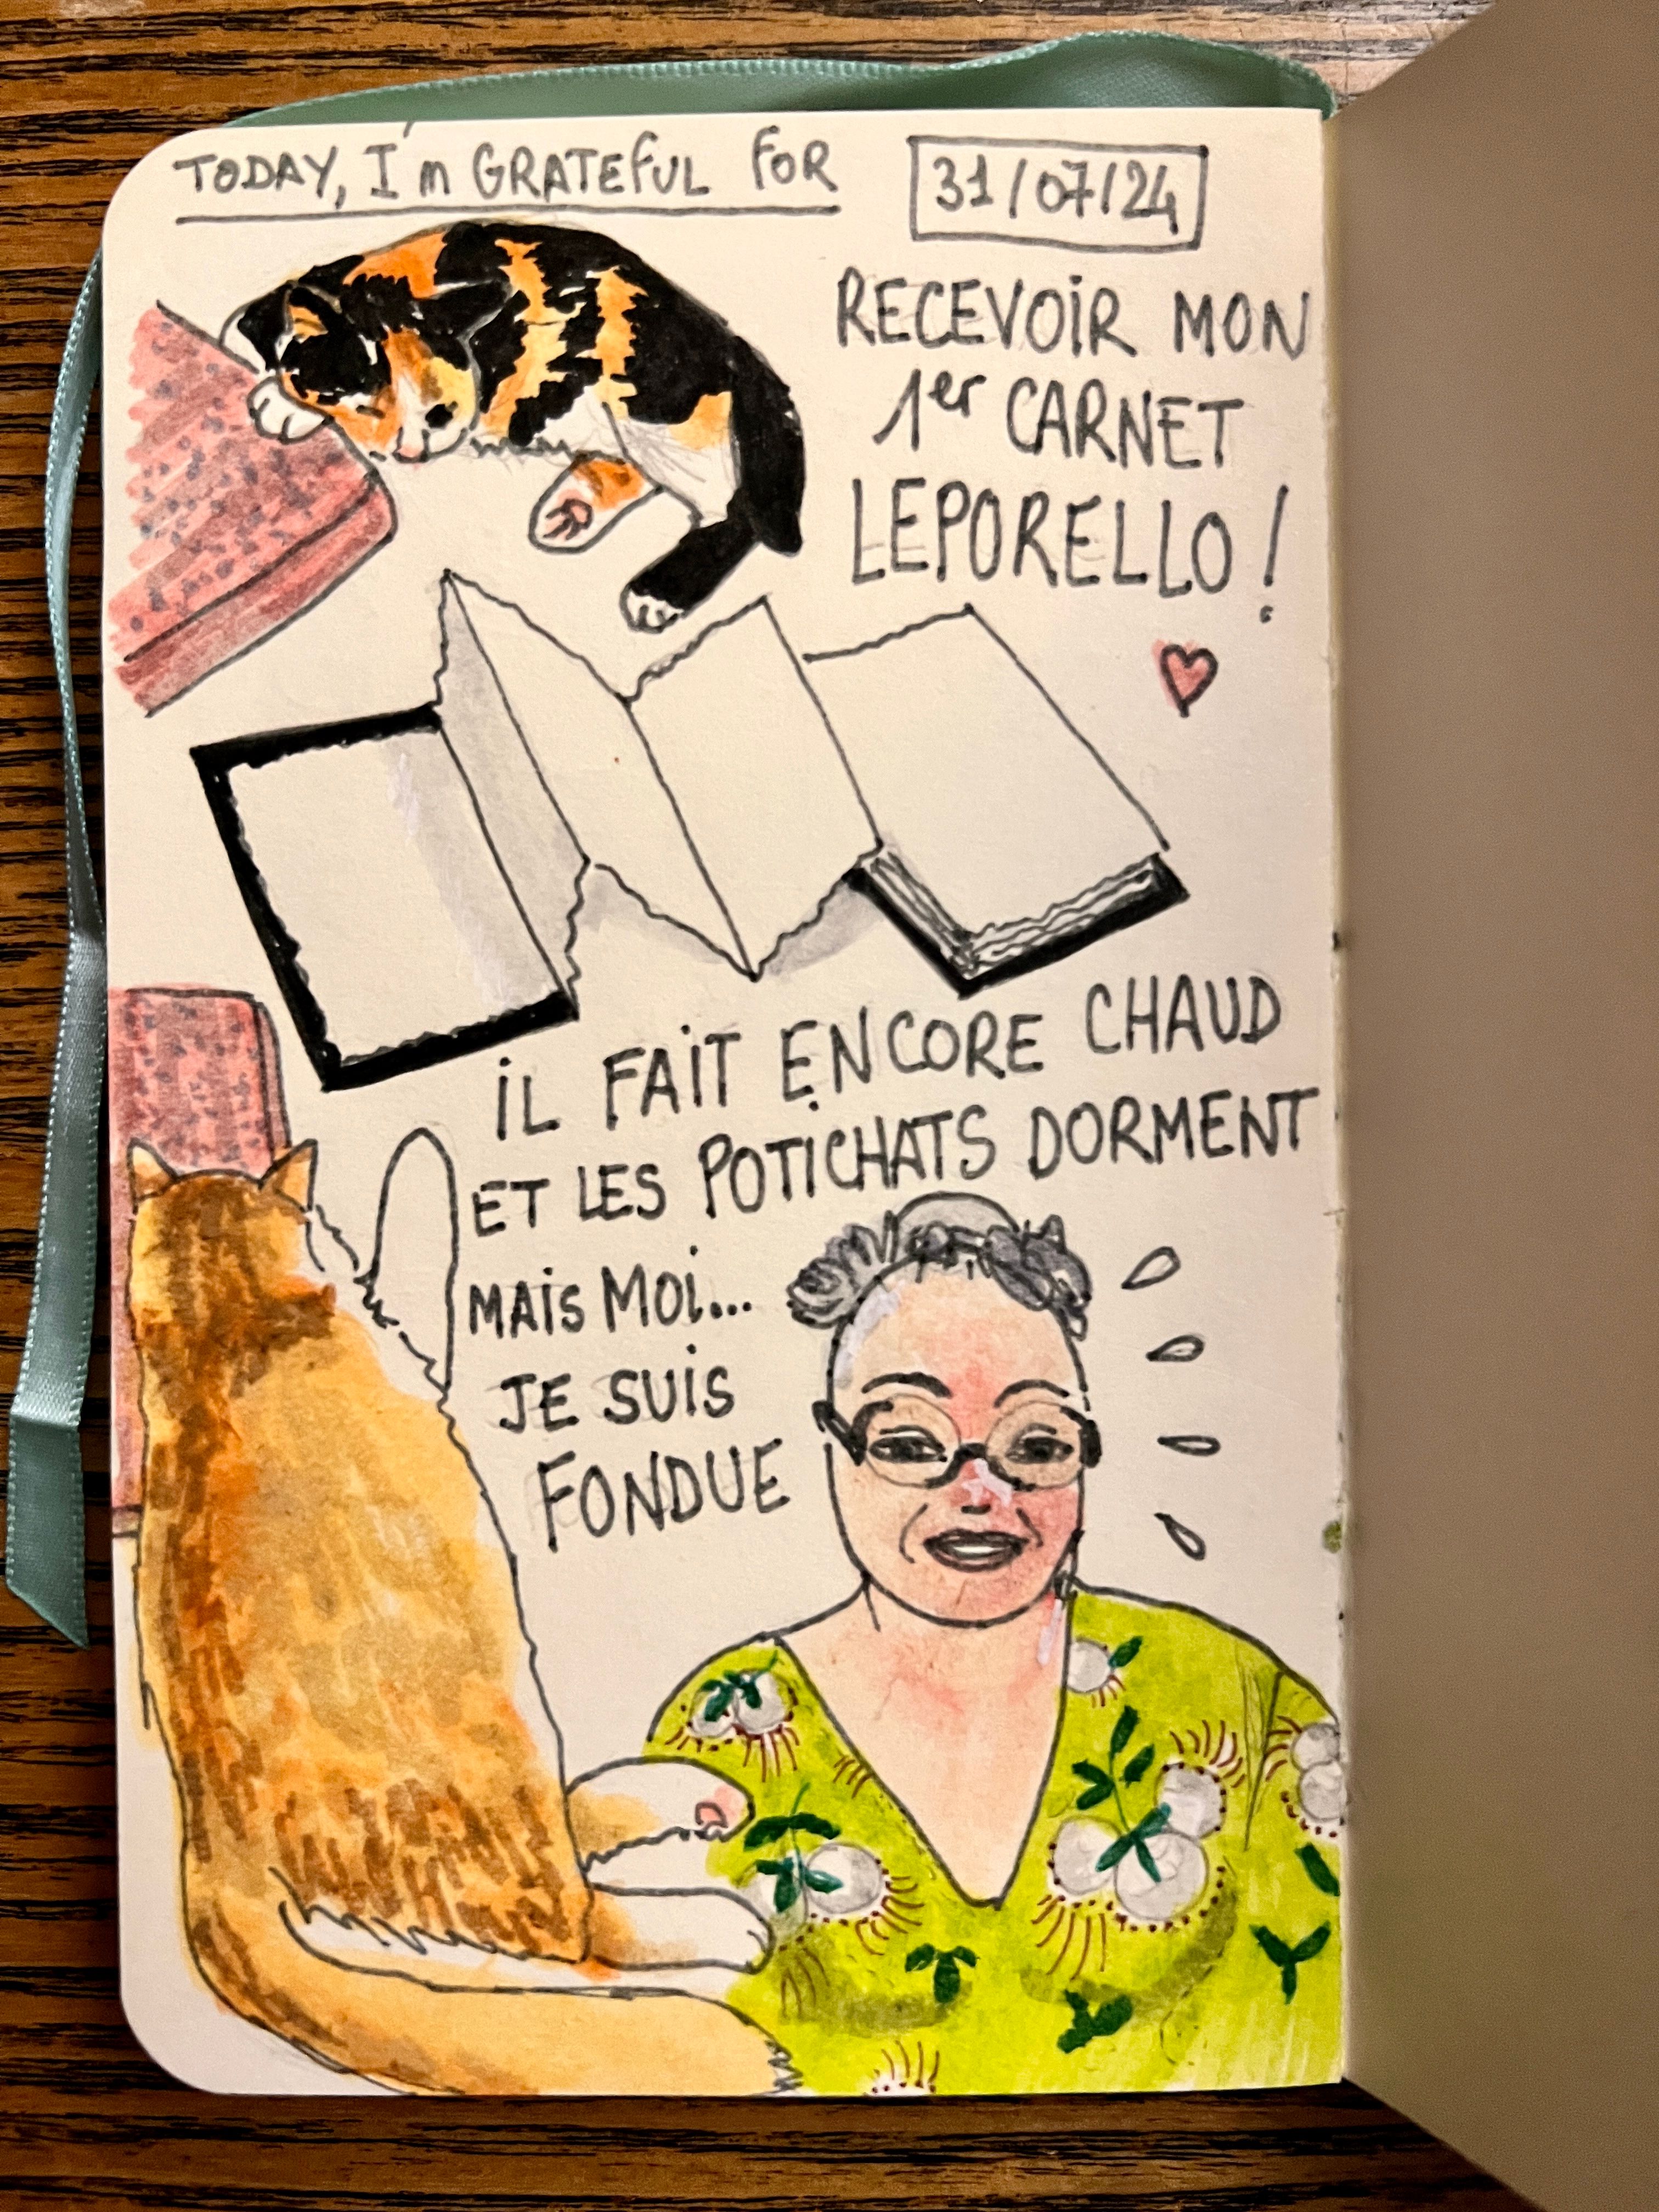 TODAY, I'm GRATEFUL FOR
31/07/24
RECEVOIR MON
1er CARNET
LEPORELLO !
IL FAIT ENCORE CHAUD
ET LES POTICHATS DORMENT
MAIS MOI...
JE SUIS
FONDUE